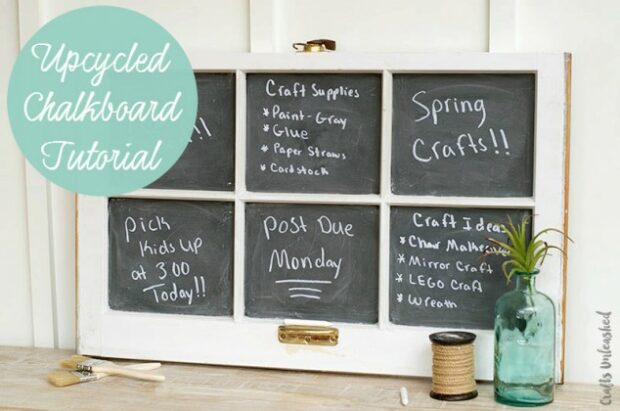 Upcycled
Chalkboard
Tutorial
!!
Craft Supplies
* Paint-Gray
* Glue
* Paper Straws
* Cardstock
Spring
Crafts!!
pick
Kids Up
at 300
Today!!
Post Due
Monday
Craft Ideas
* Chair
* Mirror Craft
* LEGO Craft
* Wreath
Crafts Unleashed